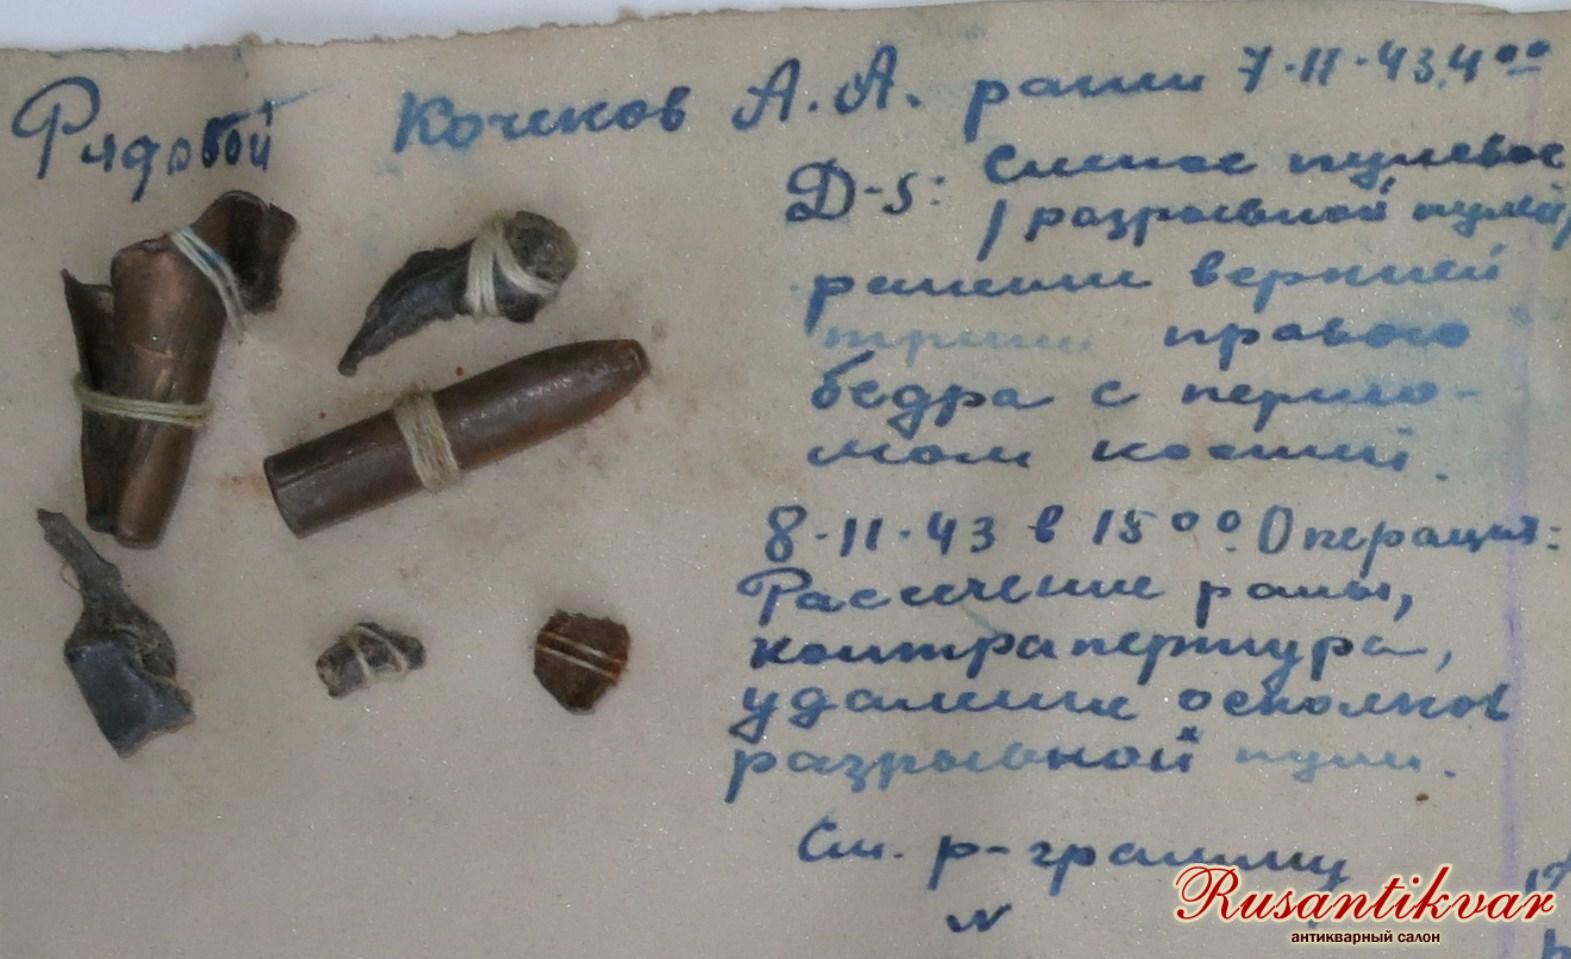 Рядовой Кочков А.А. ранен 7-11-43, 4⁰⁰
D-s: Слепое пулевое
/разрывной пулей/
ранение верхней
трети правого
бедра с перело-
мом костей.
8-11-43 в 15⁰⁰. Операция:
Рассечение раны,
контрапертура,
удаление осколков
разрывной пули.
См. р-грамму
N
Rusantikvar
антикварный салон